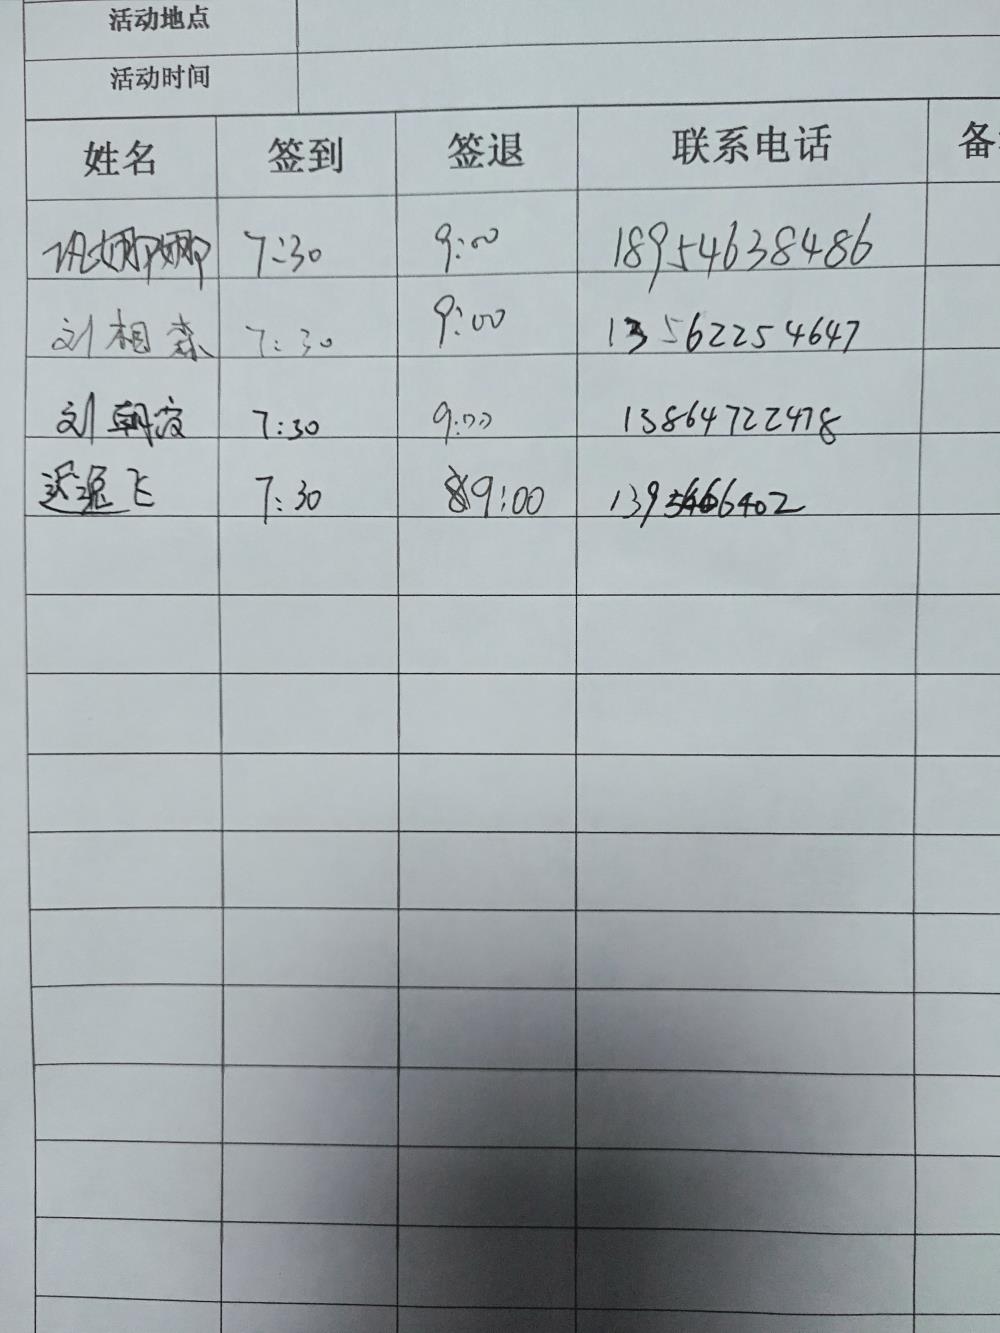 活动地点
活动时间
姓名 签到 签退 联系电话 备
娜娜 7:30 9:00 18954638486
刘相森 7:30 9:00 13562254647
刘朝 7:30 9:00 13864722478
飞 7:30 9:00